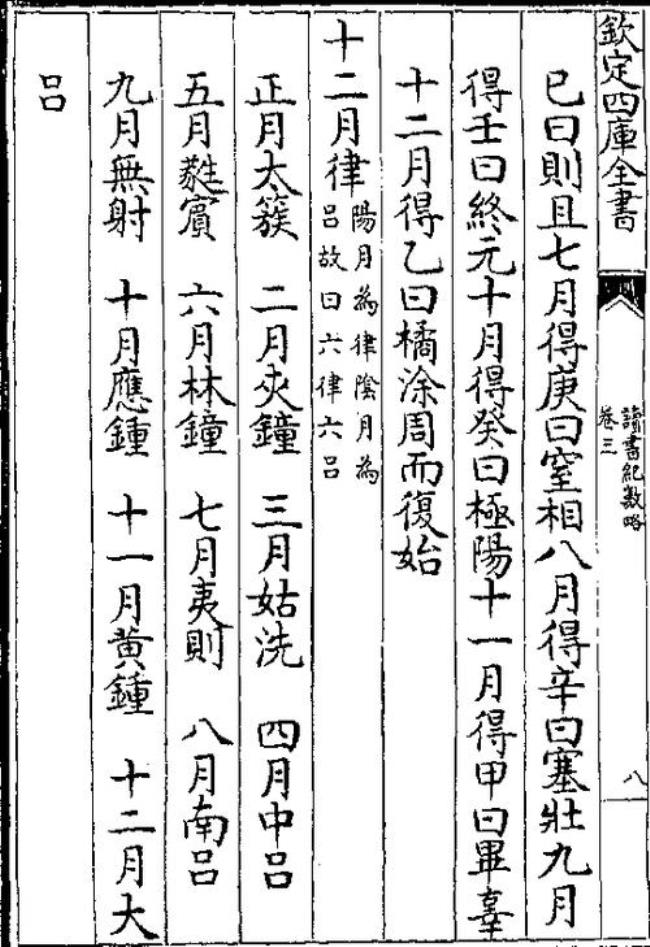 欽定四庫全書
讀書紀數略
卷三
八
已曰則且七月得庚曰窒相八月得辛曰塞壯九月
得壬曰終元十月得癸曰極陽十一月得甲曰畢辜
十二月得乙曰橘涂周而復始
十二月律陽月為律陰月為
呂故曰六律六呂
正月太簇 二月夾鐘 三月姑洗 四月中呂
五月蕤賓 六月林鐘 七月夷則 八月南呂
九月無射 十月應鍾 十一月黄鍾 十二月大
呂